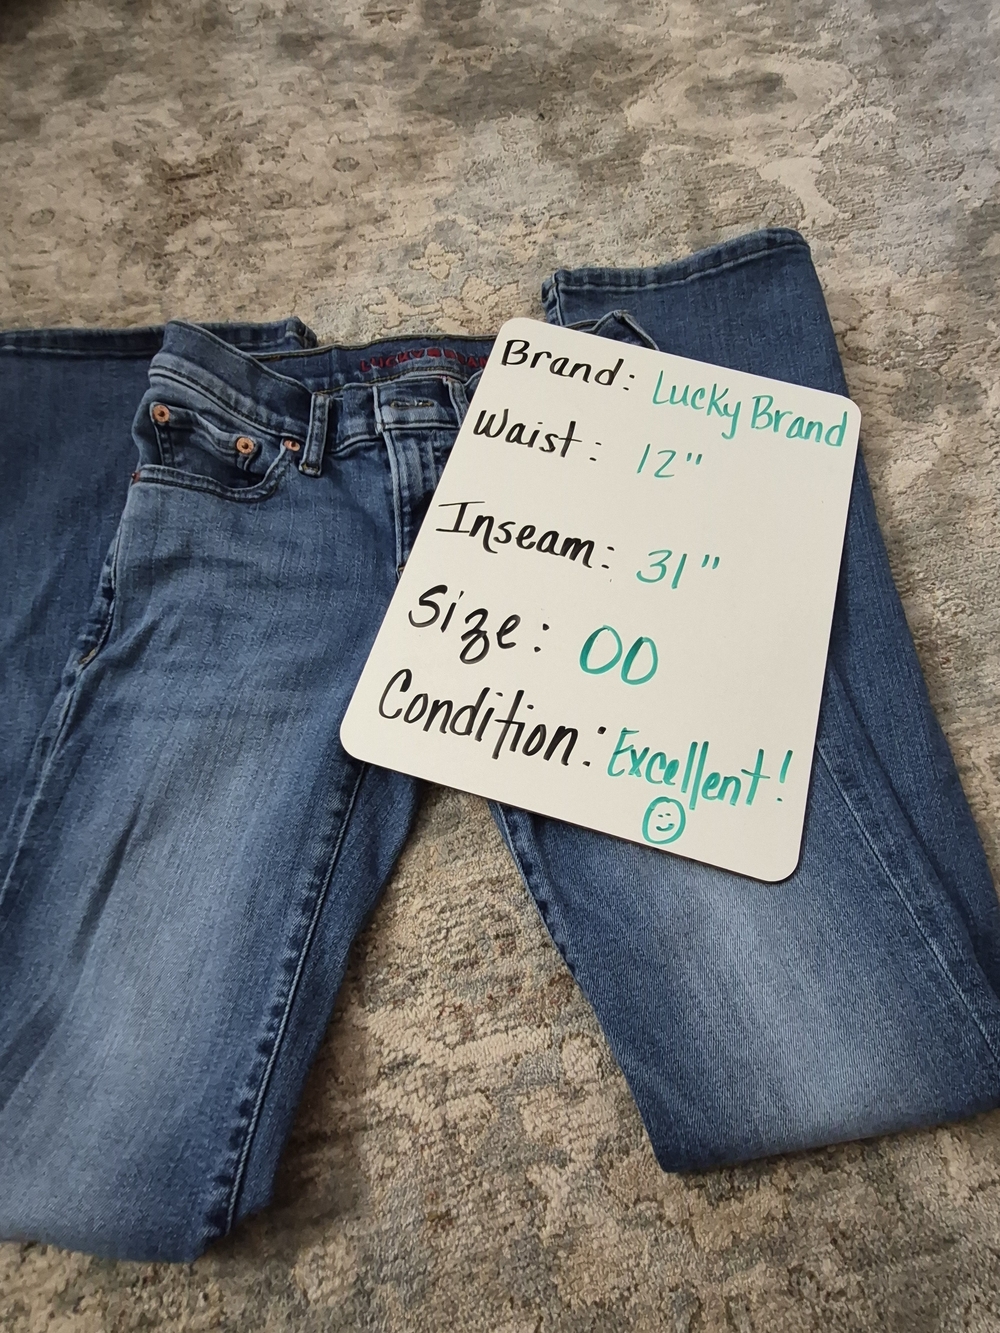 LUCKY BRAN
Brand: Lucky Brand
Waist: 12"
Inseam: 31"
Size: 00
Condition: Excellent!